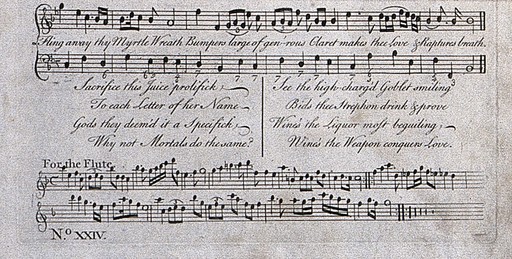 Fling away thy Myrtle Wreath Bumpers large of gen-rous Claret makes thee Love & Raptures breath.
Sacrifice this Juice prolifick,
To each Letter of her Name
Gods they deem'd it a Specifick,
Why not Mortals do the same?
See the high charg'd Goblet smiling
Bids thee Strephon drink & prove
Wine's the Liquor most beguiling,
Wine's the Weapon conquers Love.
For the Flute
N.o XXIV.